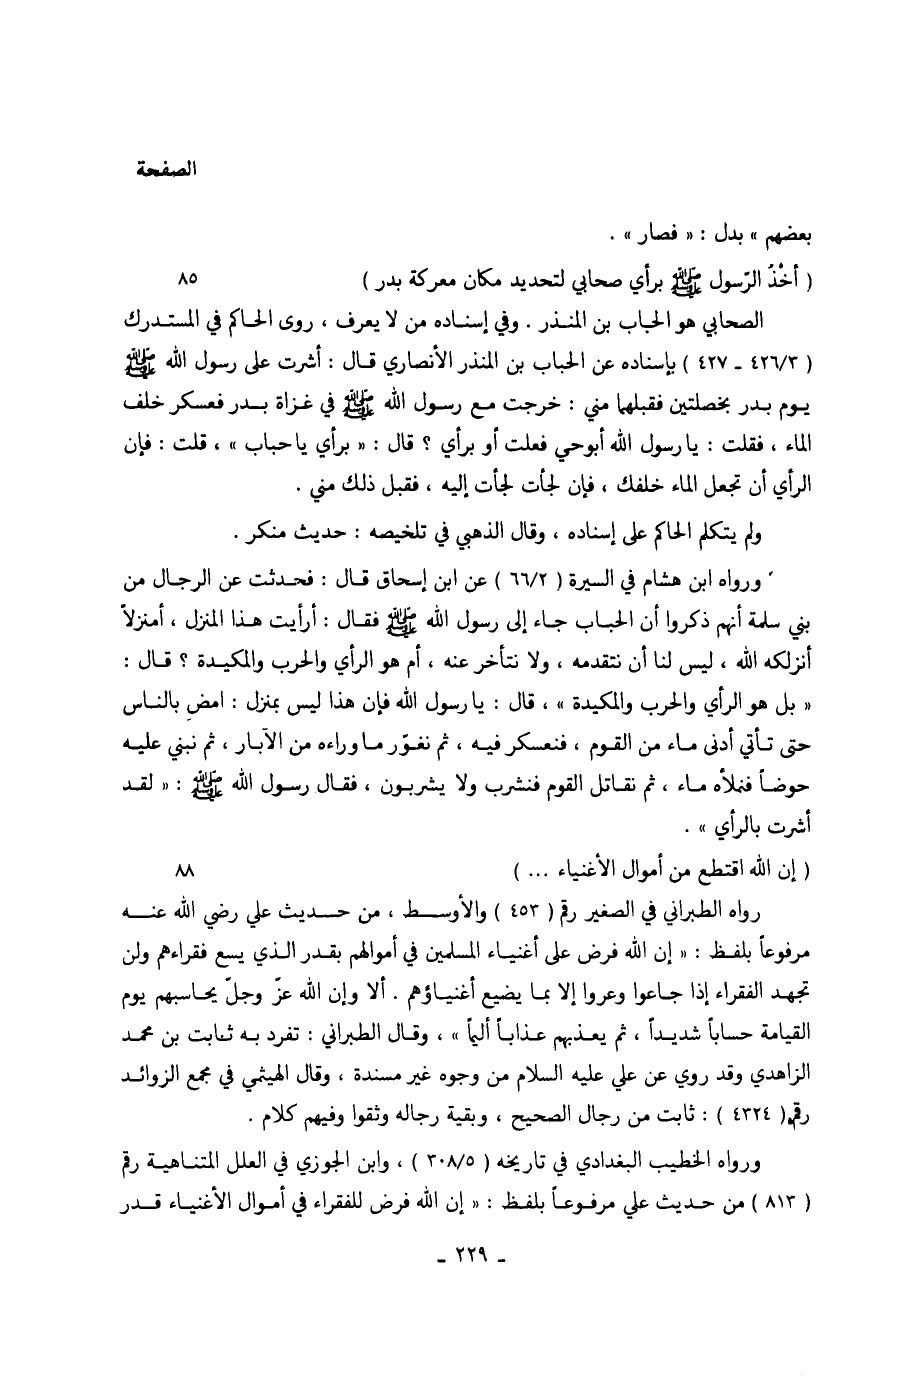 الصفحة
بعضهم » بدل : « فصار » .
( أخْذُ الرّسول ﷺ برأي صحابي لتحديد مكان معركة بدر ) ٨٥
الصحابي هو الحباب بن المنذر . وفي إسناده من لا يعرف ، روى الحاكم في المستدرك
( ٤٢٦/٣ ـ ٤٢٧ ) بإسناده عن الحباب بن المنذر الأنصاري قال : أشرت على رسول الله ﷺ
يوم بدر بخصلتين فقبلها مني : خرجت مع رسول الله ﷺ في غزاة بدر فعسكر خلف
الماء ، فقلت : يا رسول الله أبوحي فعلت أو برأي ؟ قال : « برأي ياحباب » ، قلت : فإن
الرأي أن تجعل الماء خلفك ، فإن لجأت لجأت إليه ، فقبل ذلك مني .
ولم يتكلم الحاكم على إسناده ، وقال الذهبي في تلخيصه : حديث منكر .
ورواه ابن هشام في السيرة ( ٦٦/٢ ) عن ابن إسحاق قال : فحدثت عن الرجال من
بني سلمة أنهم ذكروا أن الحباب جاء إلى رسول الله ﷺ فقال : أرأيت هذا المنزل ، أمنزلاً
أنزلكه الله ، ليس لنا أن نتقدمه ، ولا نتأخر عنه ، أم هو الرأي والحرب والمكيدة ؟ قال :
« بل هو الرأي والحرب والمكيدة » ، قال : يا رسول الله فإن هذا ليس بمنزل : امضِ بالناس
حتى تأتي أدنى ماء من القوم ، فنعسكر فيه ، ثم نغوّر ما وراءه من الآبار ، ثم نبني عليه
حوضاً فنملأه ماء ، ثم نقاتل القوم فنشرب ولا يشربون ، فقال رسول الله ﷺ : « لقد
أشرت بالرأي » .
( إن الله اقتطع من أموال الأغنياء ... ) ٨٨
رواه الطبراني في الصغير رقم ( ٤٥٣ ) والأوسط ، من حديث علي رضي الله عنه
مرفوعاً بلفظ : « إن الله فرض على أغنياء المسلمين في أموالهم بقدر الذي يسع فقراءهم ولن
تجهد الفقراء إذا جاعوا وعروا إلا بما يضيع أغنياؤهم . ألا وإن الله عزّ وجلّ يحاسبهم يوم
القيامة حساباً شديداً ، ثم يعذبهم عذاباً أليماً » ، وقال الطبراني : تفرد به ثابت بن محمد
الزاهدي وقد روي عن علي عليه السلام من وجوه غير مسندة ، وقال الهيثمي في مجمع الزوائد
رقم ( ٤٣٢٤ ) : ثابت من رجال الصحيح ، وبقية رجاله وثقوا وفيهم كلام .
ورواه الخطيب البغدادي في تاريخه ( ٣٠٨/٥ ) ، وابن الجوزي في العلل المتناهية رقم
( ٨١٣ ) من حديث علي مرفوعاً بلفظ : « إن الله فرض للفقراء في أموال الأغنياء قدر
ـ ٢٢٩ ـ